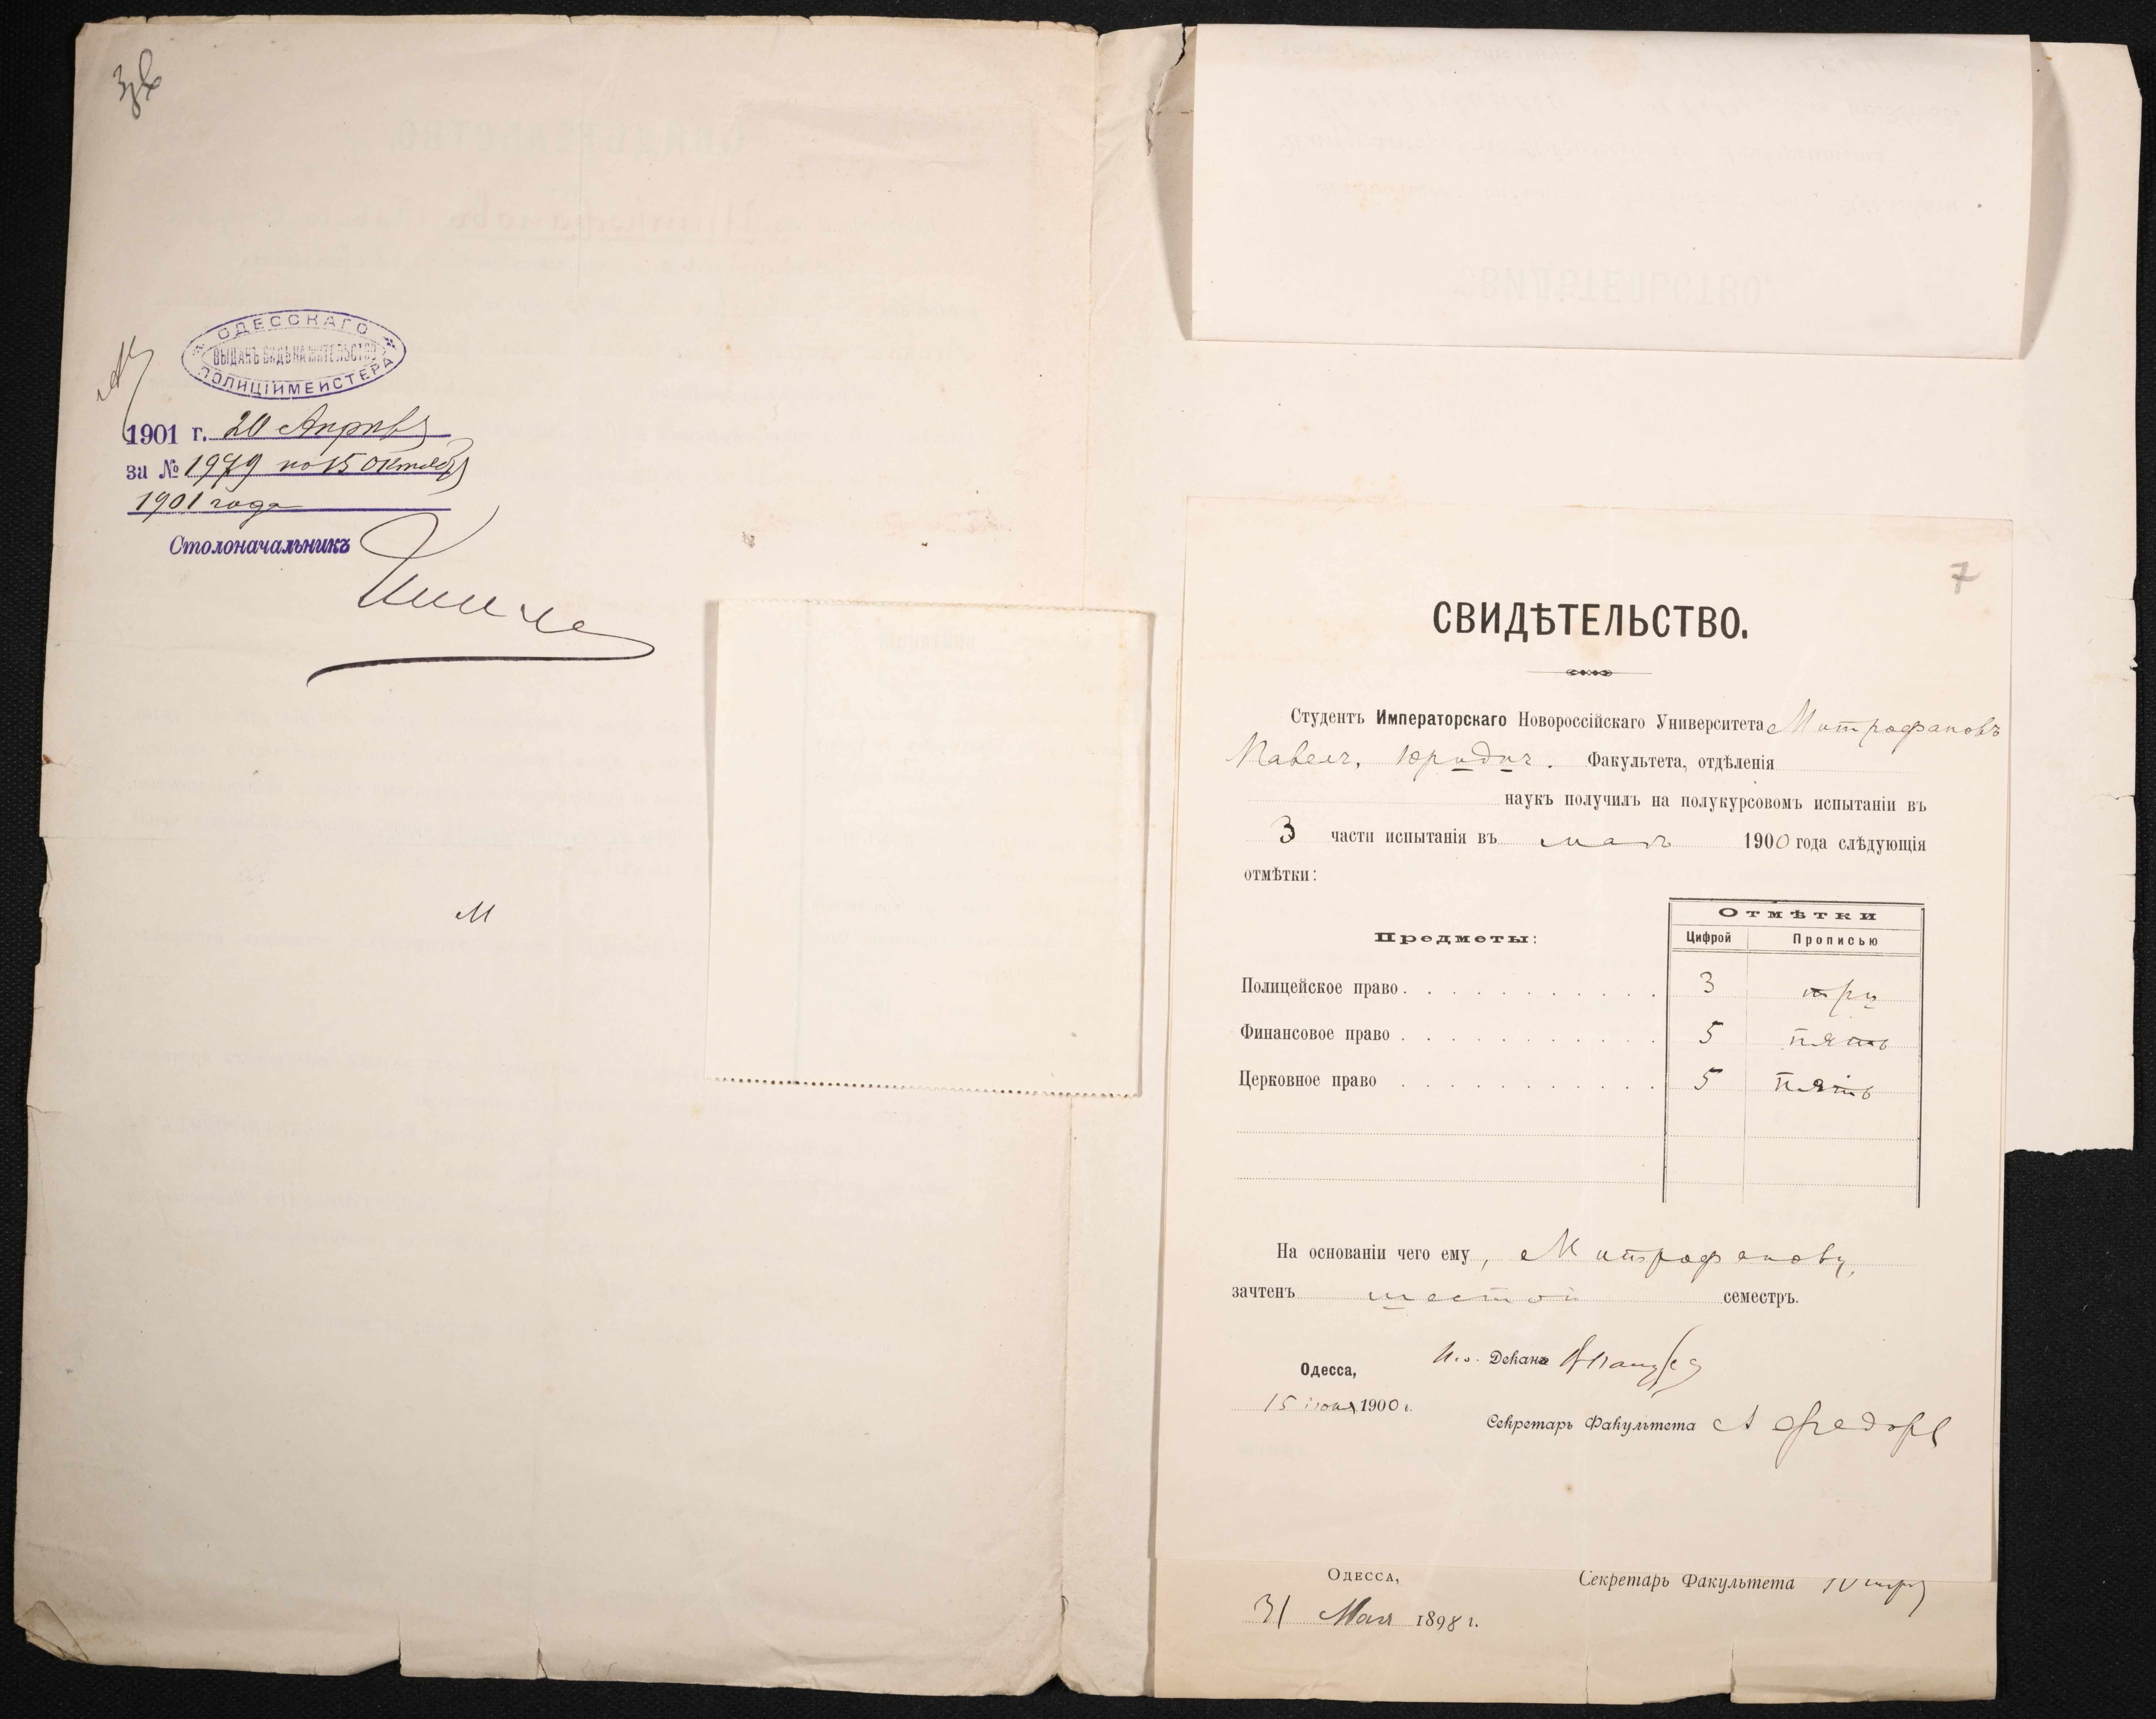 3
ОДЕССКАГО
ВЫДАНЪ ВИДЪ НА ЖИТЕЛЬСТВО
ПОЛИЦІЙМЕЙСТЕРА
1901 г. 20 Апрѣля
за № 1979 по 15 Октября
1901 года
Столоначальникъ
М
7
СВИДѢТЕЛЬСТВО.
Студентъ Императорскаго Новороссійскаго Университета Митрофановъ
Павелъ, Юридич. Факультета, отдѣленія
наукъ получилъ на полукурсовомъ испытаніи въ
3 части испытанія въ маѣ 1900 года слѣдующія
отмѣтки:
Предметы:
Отмѣтки
Цифрой Прописью
Полицейское право 3 три
Финансовое право 5 пять
Церковное право 5 пять
На основаніи чего ему, Митрофанову,
зачтенъ шестой семестръ.
И. о. Декана
Одесса,
15 іюня 1900 г.
Секретарь Факультета А Федоров
Одесса,
Секретарь Факультета
31 Мая 1898 г.